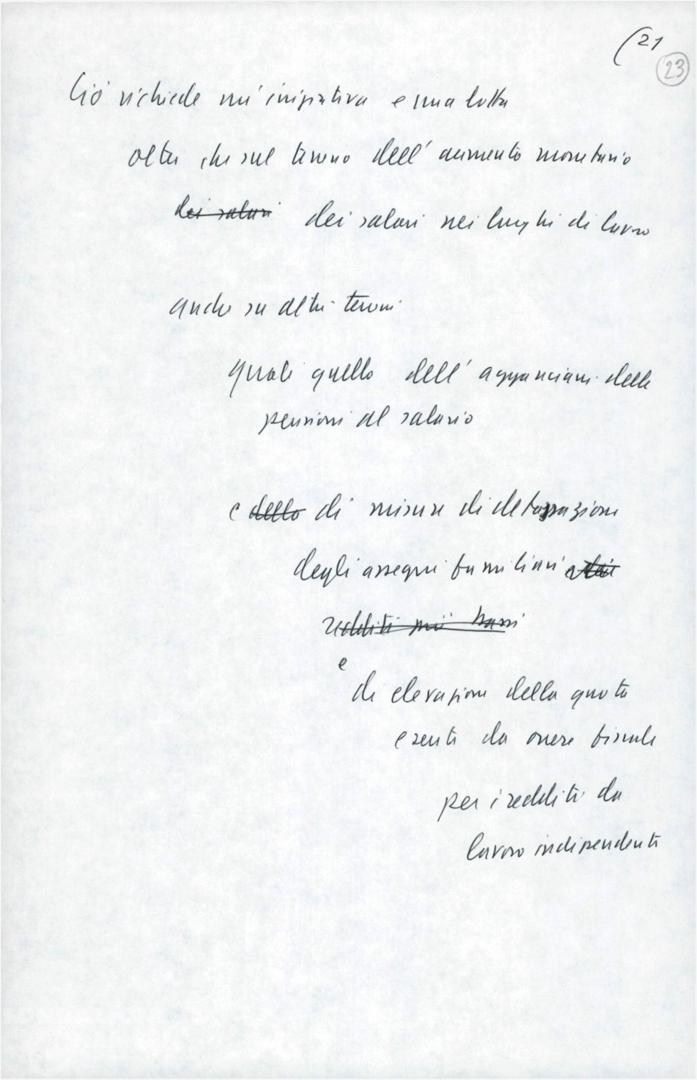 (21
23
Ciò richiede un'iniziativa e una lotta
oltre che sul terreno dell'aumento monetario
dei salari dei salari nei luoghi di lavoro
anche su altri terreni
quali quello dell'agganciam. delle
pensioni al salario
e dello di misure di detassazione
degli assegni familiari
redditi più bassi
e
di elevazione della quota
esente da onere fiscale
per i redditi da
lavoro indipendente